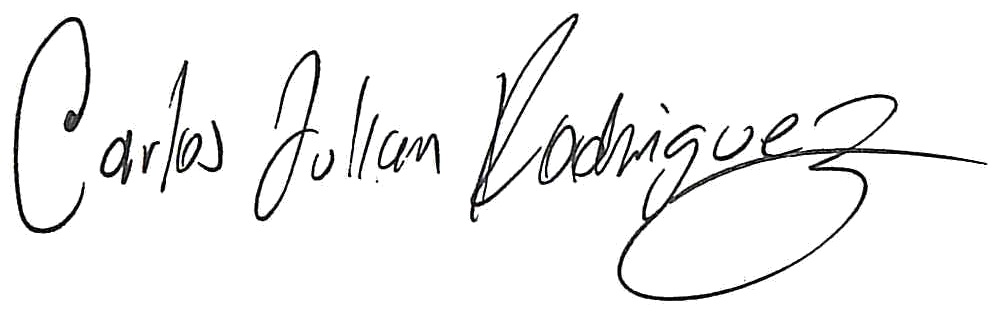 Carlos Julian Rodriguez